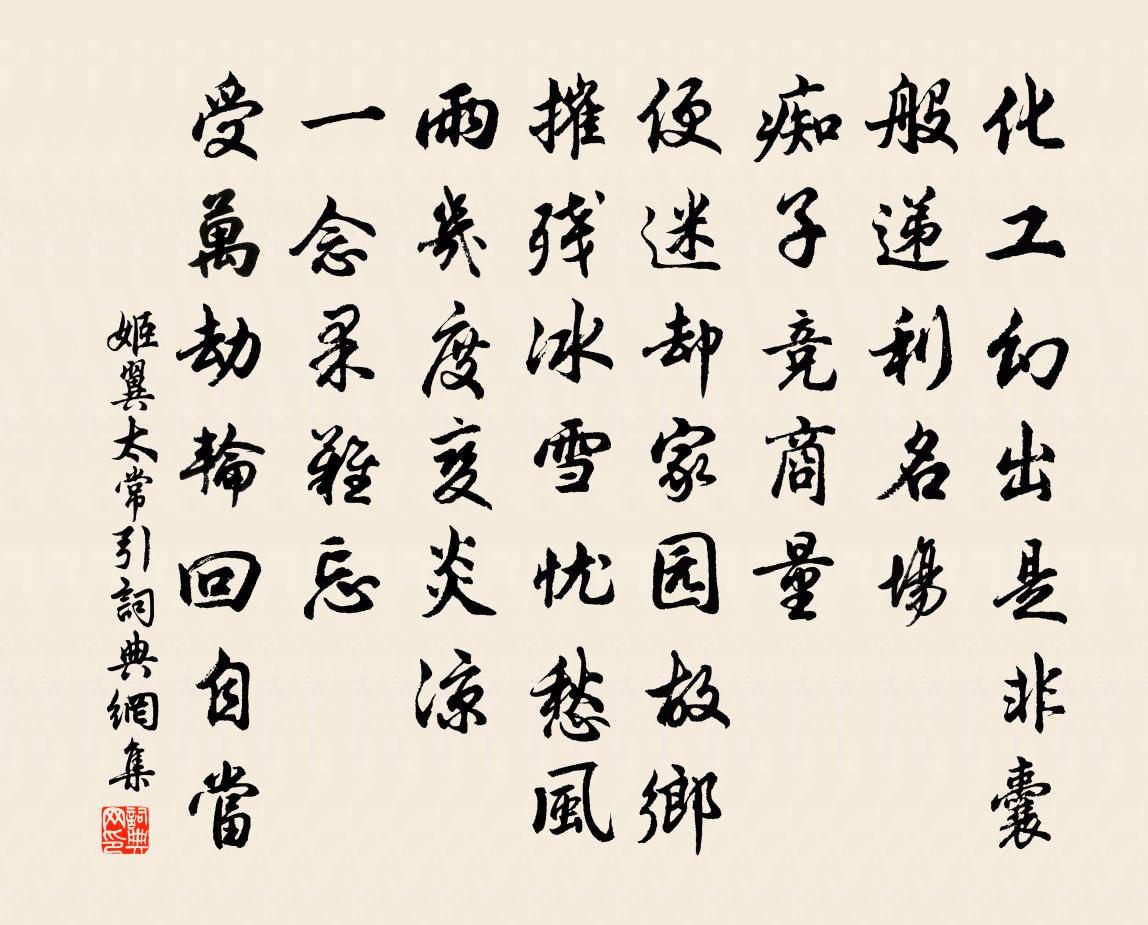 化工幻出是非囊
般递利名場
痴子竞商量
便迷却家园故鄉
摧残冰雪忧愁風
雨幾度变炎凉
一念果難忘
受萬劫輪回自當
姬翼太常引詞典網集
詞典网印